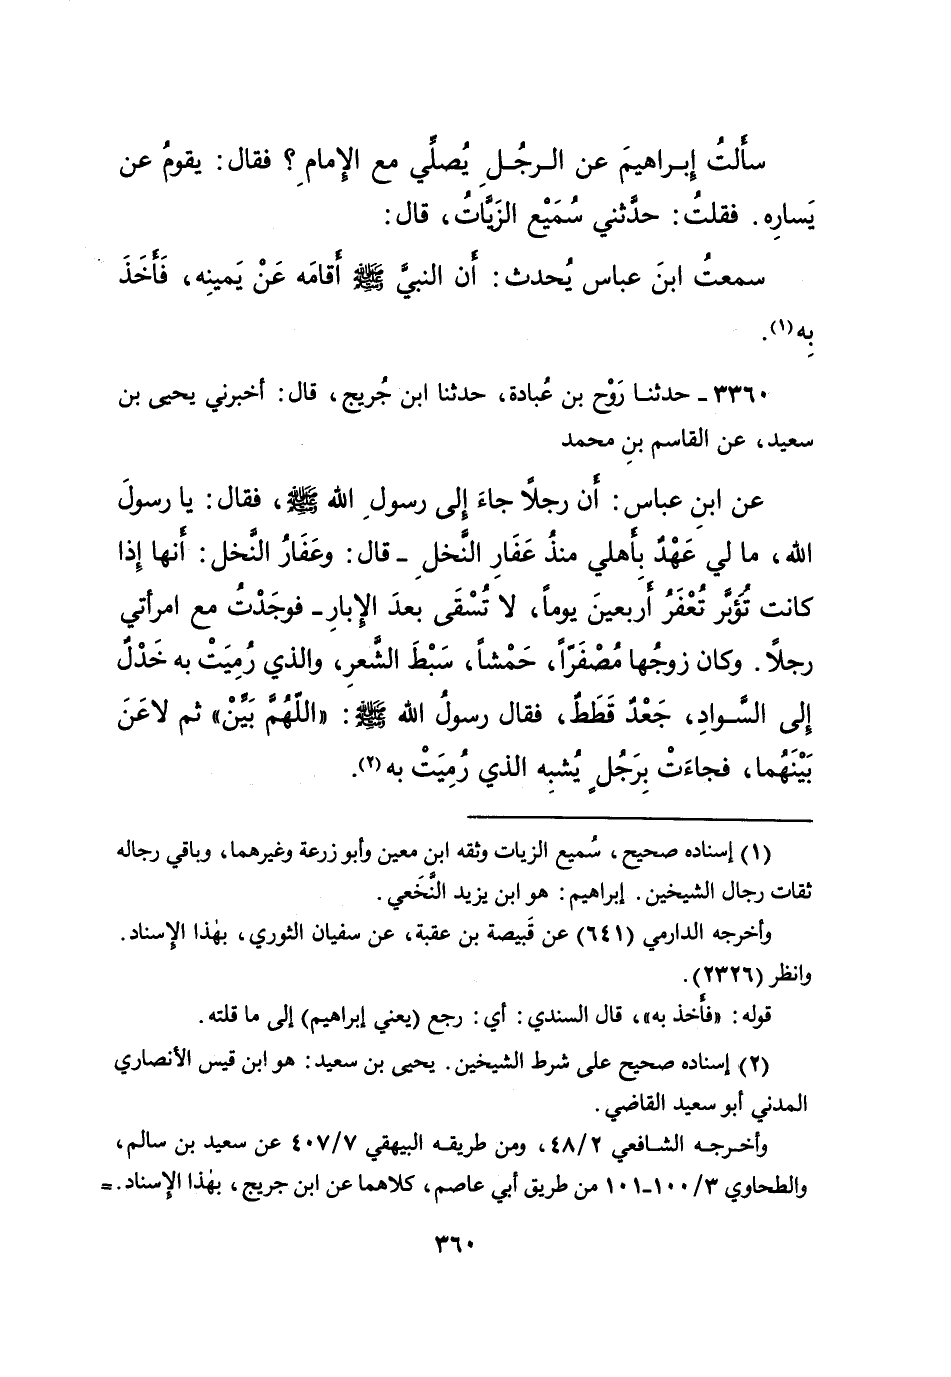 سأَلتُ إِبـراهيمَ عن الـرجُـلِ يُصلِّي مع الإِمامِ؟ فقال: يقومُ عن
يَسارِه. فقلتُ: حدَّثني سُمَيْع الزَيَّاتُ، قال:
سمعتُ ابنَ عباس يُحدث: أَن النبيَّ ﷺ أَقامَه عَنْ يَمينِه، فَأَخَذَ
بِه(١).
٣٣٦٠ ـ حدثنـا رَوْح بن عُبادة، حدثنا ابن جُريج، قال: أخبرني يحيى بن
سعيد، عن القاسم بنِ محمد
عن ابنِ عباس: أَن رجلًا جاءَ إِلى رسولِ الله ﷺ، فقال: يا رسولَ
الله، ما لي عَهْدٌ بِأَهلي منذُ عَفَارِ النَّخلِ ـ قال: وعَفَارُ النَّخل: أَنها إِذا
كانت تُؤَبَّر تُعْفَرُ أَربعينَ يوماً، لا تُسْقَى بعدَ الإِبارِ ـ فوجَدْتُ مع امرأتي
رجلًا. وكان زوجُها مُصْفَرّاً، حَمْشاً، سَبْطَ الشَّعرِ، والذي رُمِيَتْ به خَدْلٌ
إِلى السَّـوادِ، جَعْدٌ قَطَطٌ، فقال رسولُ الله ﷺ: «اللّهُمَّ بَيِّنْ» ثم لاعَنَ
بَيْنَهُما، فجاءَتْ بِرَجُلٍ يُشبِه الذي رُمِيَتْ به(٢).
(١) إسناده صحيح، سُميع الزيات وثقه ابن معين وأبو زرعة وغيرهما، وباقي رجاله
ثقات رجال الشيخين. إبراهيم: هو ابن يزيد النَّخَعي.
وأخرجه الدارمي (٦٤١) عن قَبيصة بن عقبة، عن سفيان الثوري، بهٰذا الإِسناد.
وانظر (٢٣٢٦).
قوله: «فأَخذ به»، قال السندي: أي: رجع (يعني إبراهيم) إلى ما قلته.
(٢) إسناده صحيح على شرط الشيخين. يحيى بن سعيد: هو ابن قيس الأنصاري
المدني أبو سعيد القاضي.
وأخـرجـه الشـافعي ٤٨/٢، ومن طريقـه البيهقي ٤٠٧/٧ عن سعيد بن سالم،
والطحاوي ١٠٠/٣-١٠١ من طريق أبي عاصم، كلاهما عن ابن جريج، بهٰذا الإِسناد. =
٣٦٠